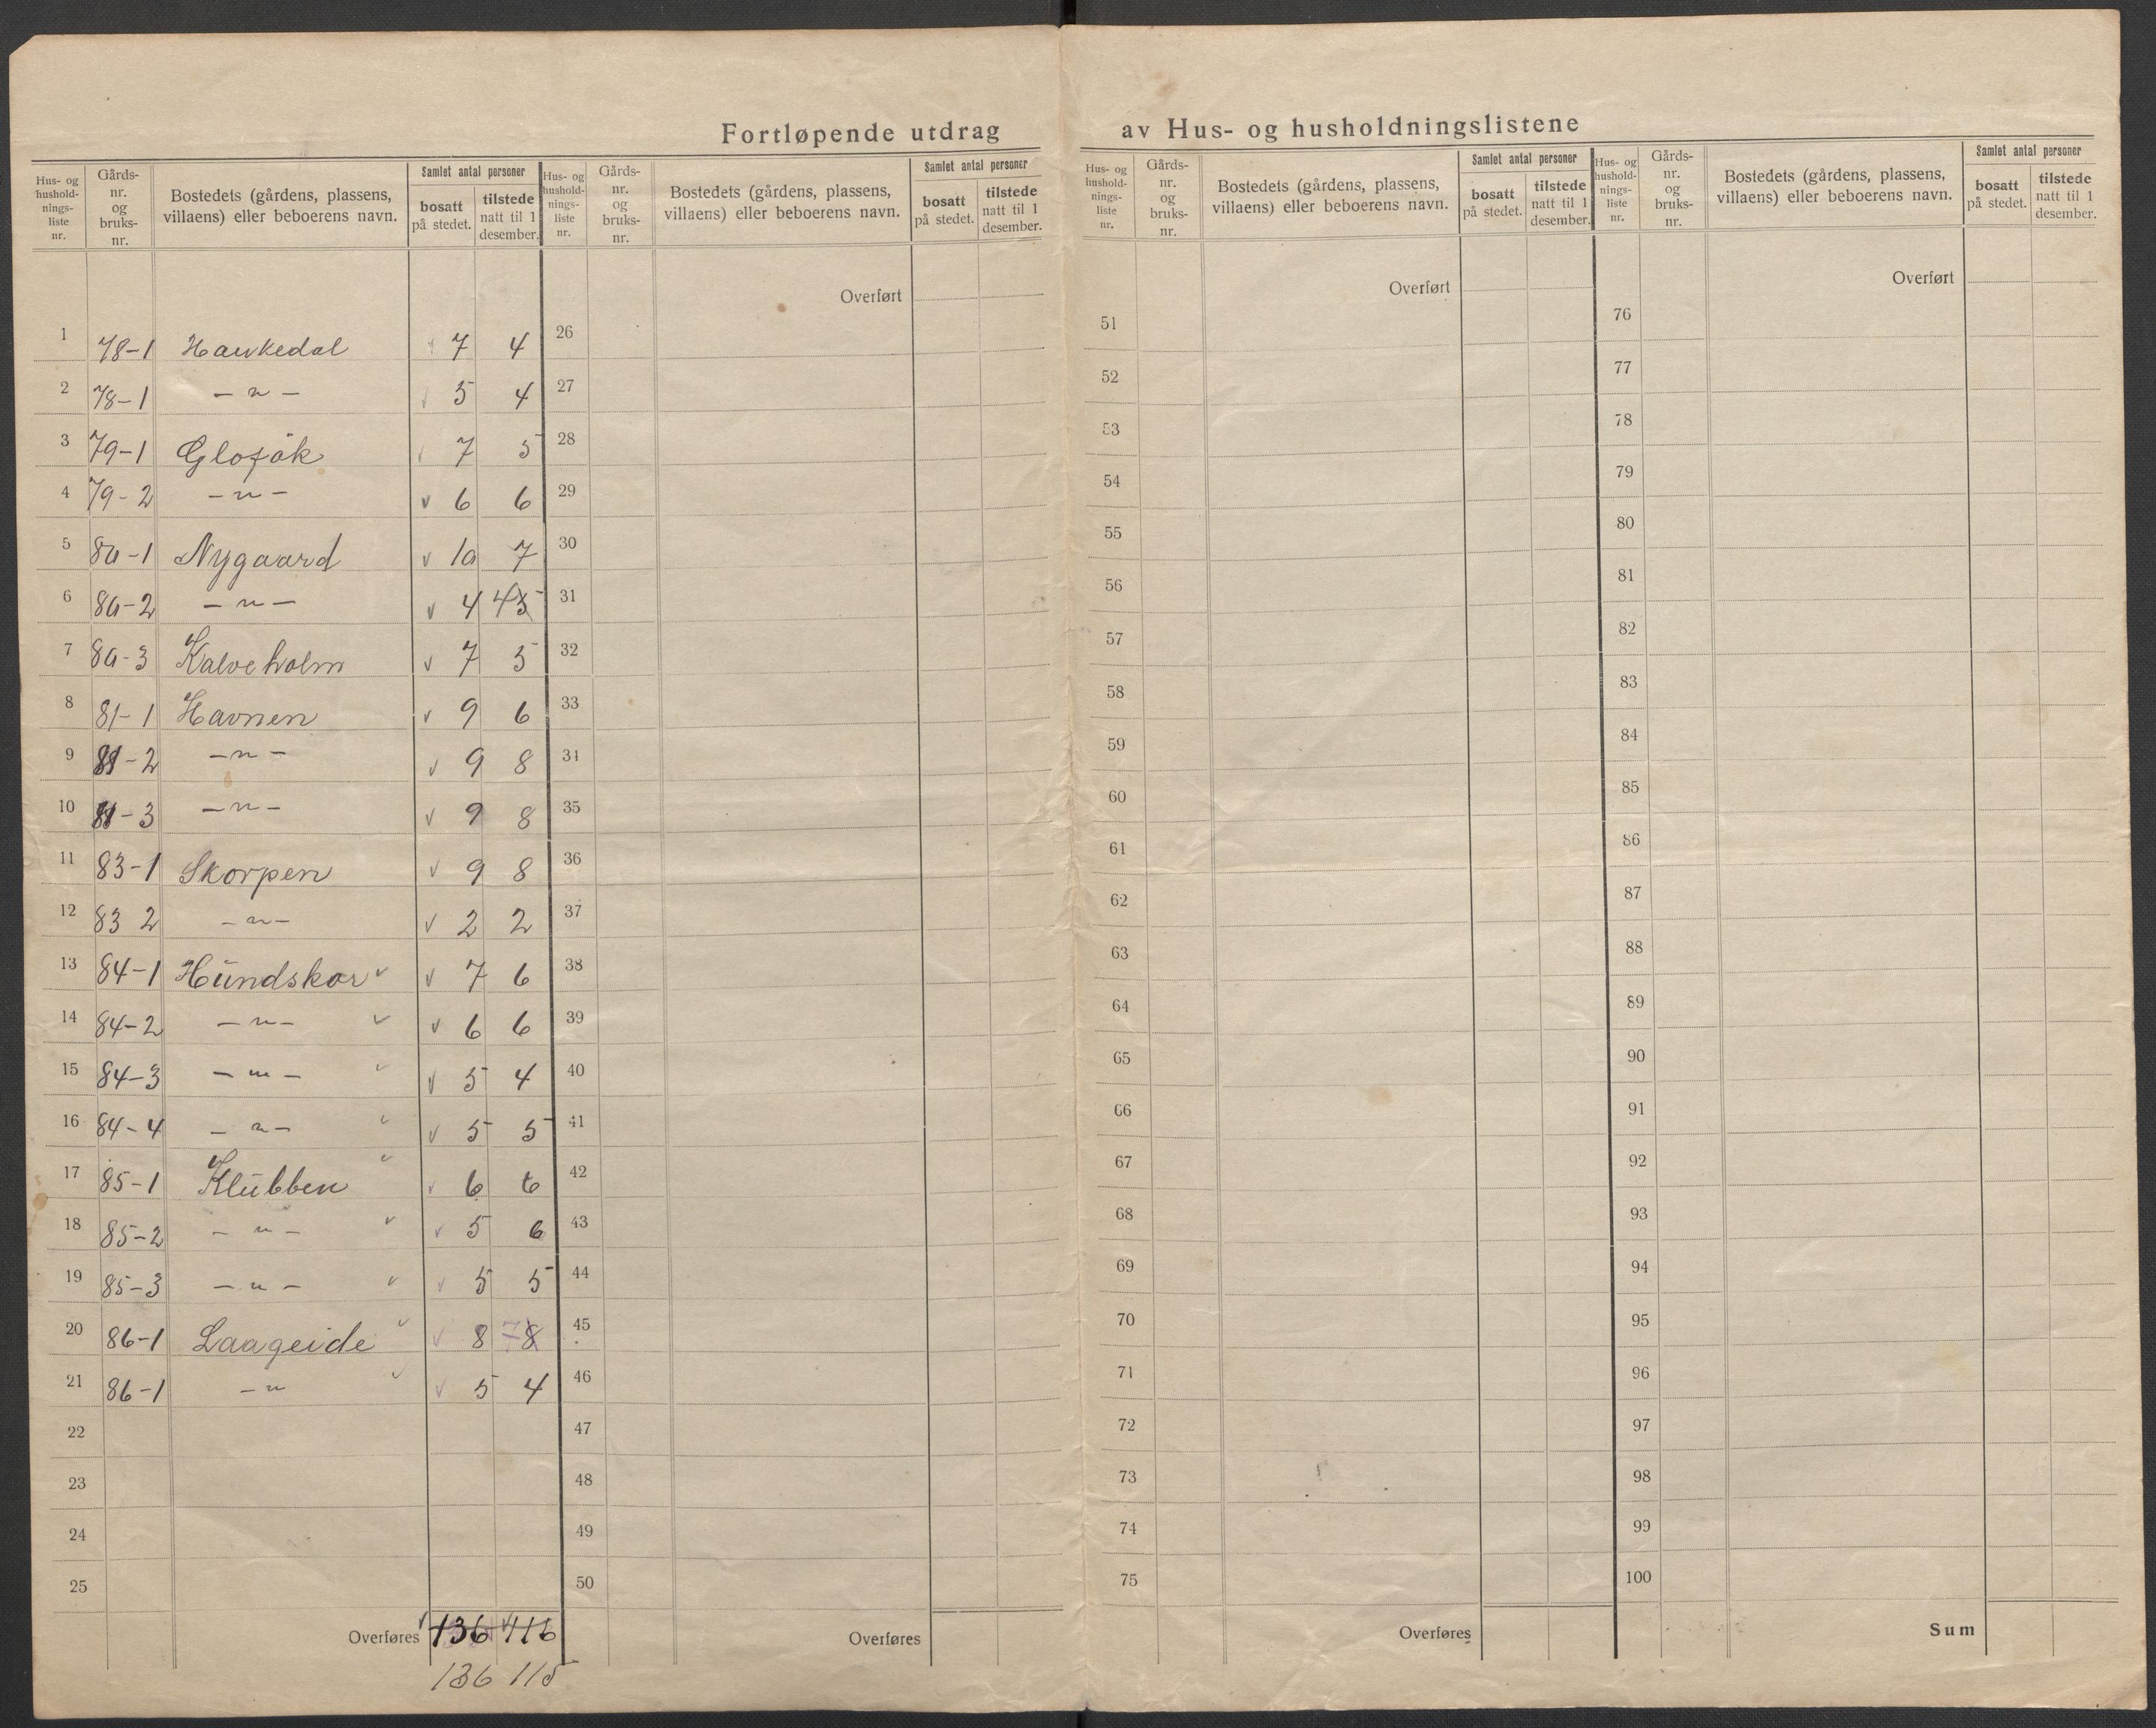 Fortløpende utdrag av Hus- og husholdningslistene
Hus- og hushold-nings-liste nr. | Gårds-nr. og bruks-nr. | Bostedets (gårdens, plassens, villaens) eller beboerens navn. | Samlet antal personer | bosatt på stedet. | tilstede natt til 1 desember.
Hus- og hushold-nings-liste nr. | Gårds-nr. og bruks-nr. | Bostedets (gårdens, plassens, villaens) eller beboerens navn. | Samlet antal personer | bosatt på stedet. | tilstede natt til 1 desember.
Hus- og hushold-nings-liste nr. | Gårds-nr. og bruks-nr. | Bostedets (gårdens, plassens, villaens) eller beboerens navn. | Samlet antal personer | bosatt på stedet. | tilstede natt til 1 desember.
Hus- og hushold-nings-liste nr. | Gårds-nr. og bruks-nr. | Bostedets (gårdens, plassens, villaens) eller beboerens navn. | Samlet antal personer | bosatt på stedet. | tilstede natt til 1 desember.
1 78-1 Haukedal 7 4
2 78-1 -„- 5 4
3 79-1 7 5
4 79-2 -„- v 6 6
5 80-1 Nygaard v 10 7
6 80-2 -„- v 4 4 5
7 80-3 Kalveholm v 7 5
8 81-1 Havnen v 9 6
9 81-2 -„- v 9 8
10 81-3 -„- v 9 8
11 83-1 Skorpen v 9 8
12 83 2 -„- v 2 2
13 84-1 Hundskar v v 7 6
14 84-2 -„- v v 6 6
15 84-3 -„- v v 5 4
16 84-4 -„- v v 5 5
17 85-1 Klubben v v 6 6
18 85-2 -„- v v 5 6
19 85-3 -„- v v 5 5
20 86-1 Laageide v v 8 7 8
21 86-1 -„ v v 5 4
22
23
24
25
Overføres v 136 v 116
136 115
Overført
26
27
28
29
30
31
32
33
34
35
36
37
38
39
40
41
42
43
44
45
46
47
48
49
50
Overføres
Overført
51
52
53
54
55
56
57
58
59
60
61
62
63
64
65
66
67
68
69
70
71
72
73
74
75
Overføres
Overført
76
77
78
79
80
81
82
83
84
85
86
87
88
89
90
91
92
93
94
95
96
97
98
99
100
Sum